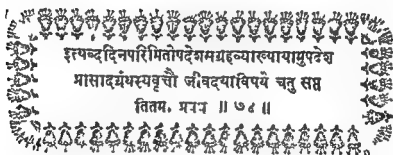 इत्यब्ददिनपरिमितोपदेशसंग्रहव्याख्यायामुपदेश
प्रासादग्रंथस्यवृत्तौ जीवदयाविषये चतु सप्त
तितम. प्रबन्ध ॥ ७४ ॥